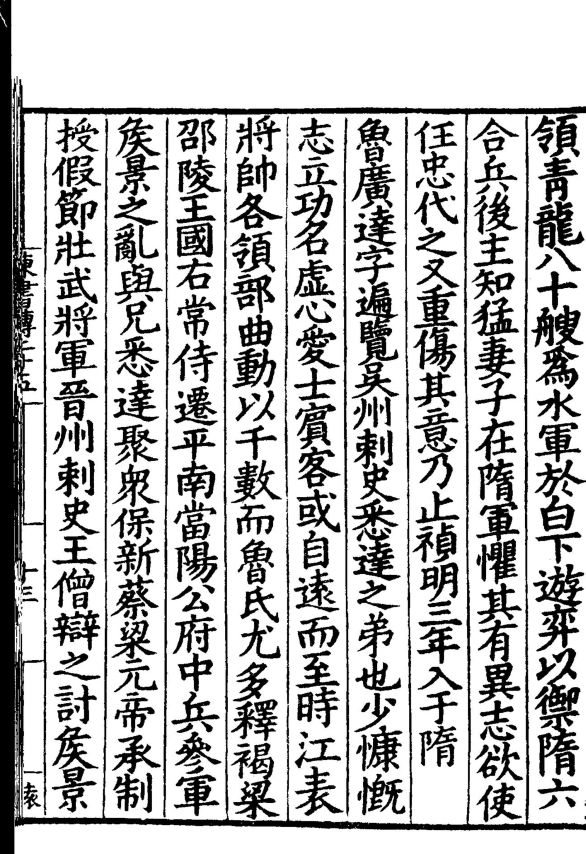 領青龍八十艘爲水軍於白下遊弈以禦隋六
合兵後主知猛妻子在隋軍懼其有異志欲使
任忠代之又重傷其意乃止禎明三年入于隋
魯廣達字遍覽吳州刺史悉達之弟也少慷慨
志立功名虛心愛士賓客或自遠而至時江表
將帥各領部曲動以千數而魯氏尤多釋褐梁
邵陵王國右常侍遷平南當陽公府中兵參軍
矦景之亂與兄悉達聚衆保新蔡梁元帝承制
授假節壯武將軍晉州刺史王僧辯之討矦景
十三